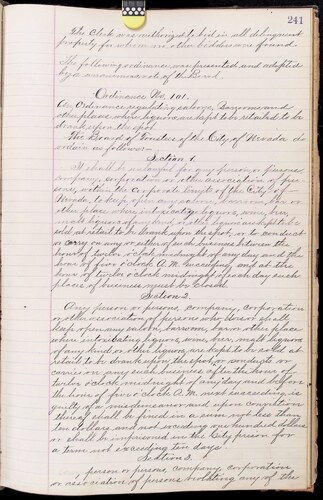 241
The Clerk was authorized to bid in all delinquent
property for whom no other bidders were found.
The following ordinance was presented and adopted
by a unanimous vote of the Board.
Ordinance No. 101.
An Ordinance regulating saloons, Barrooms and
other places where liquors are kept to be retailed to be
drank upon the spot.
The Board of Trustees of the City of Nevada do
ordain as follows:
Section 1.
It shall be unlawful for any person or persons
company, corporation or other association of per
sons, within the corporate limits of the City of
Nevada, to keep open any saloon, barroom, bar or
other place where intoxicating liquors, wine, beer,
malt liquors of any kind or other liquors are kept to be
sold at retail to be drank upon the spot, or to conduct
or carry on any or either of such business between the
hour of twelve o'clock midnight of any day and the
hour of five o'clock A.M. succeeding, and at the
hour of twelve o'clock midnight of each day such
places of business must be closed.
Section 2.
Any person or persons, company, corporation
or other association of persons who does or shall
keep open any saloon, barroom, bar or other place
where intoxicating liquors, wine, beer, malt liquors
of any kind or other liquors are kept to be sold at
retail to be drank upon the spot, or conducts or
carries on any such business after the hour of
twelve o'clock midnight of any day and before
the hour of five o'clock A.M. next succeeding is
guilty of a misdemeanor and upon conviction
thereof shall be fined in a sum not less than
ten dollars and not exceeding one hundred dollars
or shall be imprisoned in the City prison for
a term not exceeding ten days.
Section 3.
person or persons, company, corporation
or association of persons holding any of the